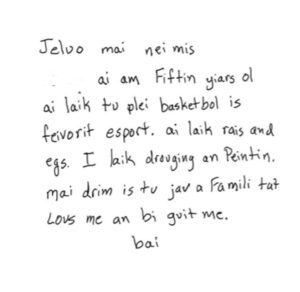 Jeluo mai nei mis
ai am Fiftin yiars ol
ai laik tu plei basketbol is
feivorit esport. ai laik rais and
egs. I laik drouging an Peintin.
mai drim is tu jav a Famili tat
Lovs me an bi guit me.
bai